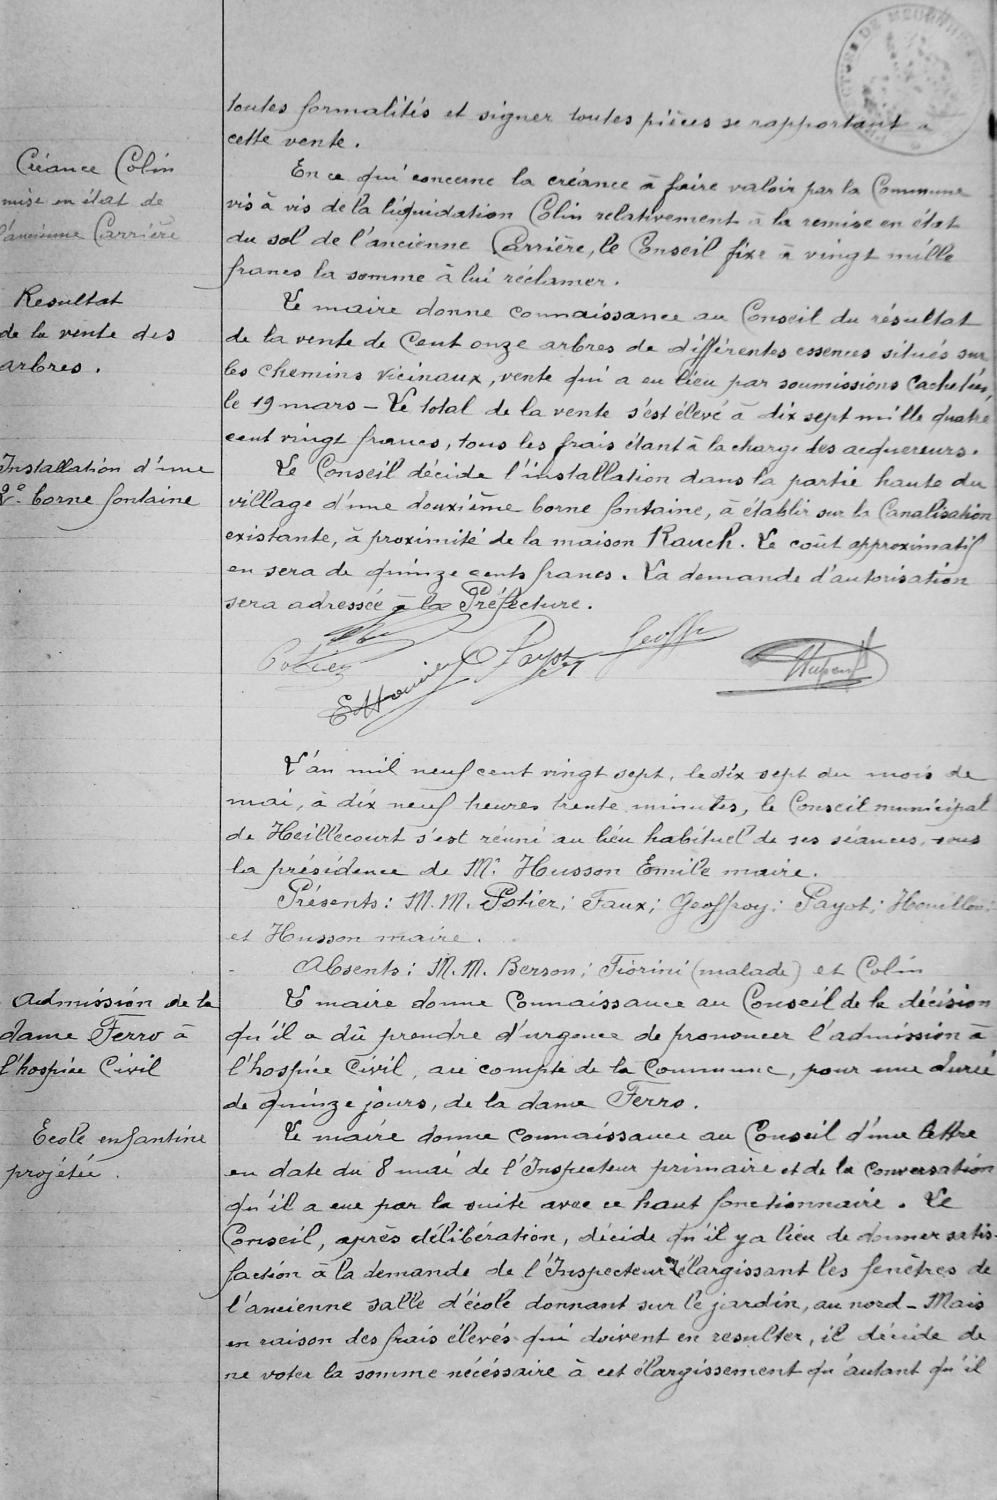 toutes formalités et signer toutes pièces se rapportant à
cette vente.
Créance Colin
mise en état de
l'ancienne Carrière
En ce qui concerne la créance à faire valoir par la Commune
vis à vis de la liquidation Colin relativement à la remise en état
du sol de l'ancienne Carrière, le Conseil fixe à vingt mille
francs la somme à lui réclamer.
Resultat
de la vente des
arbres.
Le maire donne connaissance au Conseil du résultat
de la vente de Cent onze arbres de différentes essences situés sur
les chemins vicinaux, vente qui a eu lieu par soumissions cachetées,
le 19 mars - Le total de la vente s'est élevé à dix sept mille quatre
cent vingt francs, tous les frais étant à la charge des acquereurs.
Installation d'une
2e borne fontaine
Le Conseil décide l'installation dans la partie haute du
village d'une deuxième borne fontaine, à établir sur la Canalisation
existante, à proximité de la maison Rauch. Le coût approximatif
en sera de quinze cents francs. La demande d'autorisation
sera adressée à la Préfecture.
Potier
EHouillon Payot Geoffroy
L'an mil neuf cent vingt sept, le dix sept du mois de
mai, à dix neuf heures trente minutes, le Conseil municipal
de Heillecourt s'est réuni au lieu habituel de ses séances, sous
la présidence de Mr Husson Emile maire.
Présents: M.M. Potier; Faux; Geoffroy; Payot; Houillon;
et Husson maire.
Absents: M.M. Berson; Fiorini (malade) et Colin
Admission de la
dame Ferro à
l'hospice Civil
Le maire donne Connaissance au Conseil de la décision
qu'il a dû prendre d'urgence de prononcer l'admission à
l'hospice Civil, au compte de la Commune, pour une durée
de quinze jours, de la dame Ferro.
Ecole enfantine
projétée.
Le maire donne connaissance au Conseil d'une lettre
en date du 8 mai de l'Inspecteur primaire et de la conversation
qu'il a eue par la suite avec ce haut fonctionnaire. Le
Conseil, après délibération, décide qu'il y a lieu de donner satis-
faction à la demande de l'Inspecteur élargissant les fenêtres de
l'ancienne salle d'école donnant sur le jardin, au nord - Mais
en raison des frais élevés qui doivent en resulter, il décide de
ne voter la somme nécéssaire à cet élargissement qu'autant qu'il